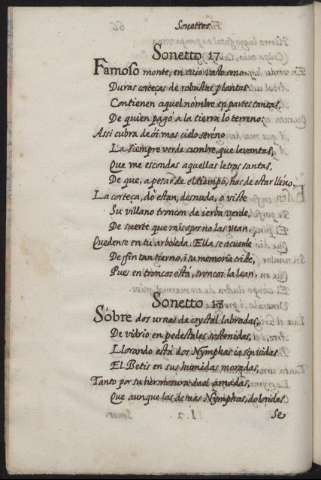 Sonettos
Sonetto 17.
Famoso monte, en cuio vasto seno
Duras cortezas de robustas plantas
Contienen aquel nombre en partes tantas,
De quien pagó a la tierra lo terreno:
Assi cubra de oi mas cielo sereno
La siempre verde cumbre, que leuantas,
Que me escondas aquellas letras santas,
De que, a pesar de el tiempo, has de estar lleno.
La corteza, do estan, desnuda, o viste
Su villano troncon de ierva verde,
De suerte que mis ojos no las vean.
Quedense en tu arboleda, Ella se acuerde
De fin tan tierno, i su memoria triste,
Pues en troncos está, troncos la lean.
Sonetto 18
Sobre dos urnas de crystal labradas,
De vidrio en pedestales sostenidas,
Llorando está dos Nymphas ia sin vidas
El Betis en sus humidas moradas,
Tanto por su hermosura de el amadas,
Que aunque las demas Nymphas doloridas
Se